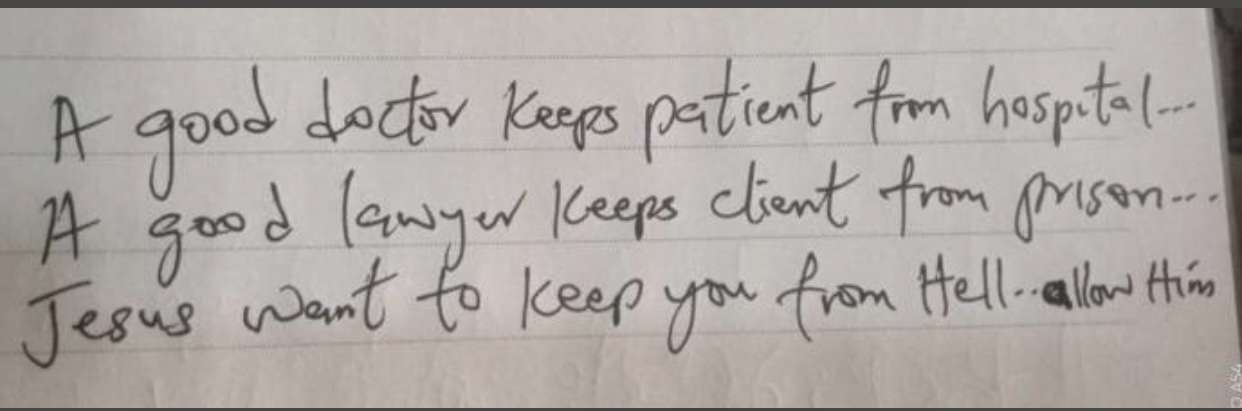 A good doctor keeps patient from hospital...
A good lawyer keeps client from prison...
Jesus want to keep you from Hell.. allow Him